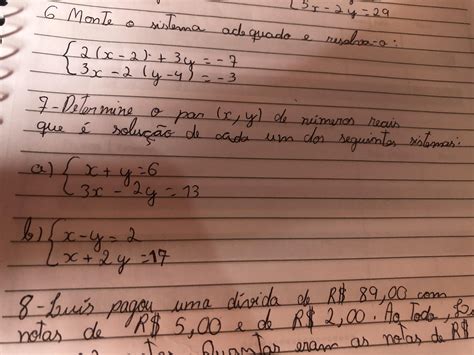 3x - 2y = 29
6 Monte o sistema adequado e resolva-o:
2(x-2) + 3y = -7
3x - 2(y-4) = -3
7- Determine o par (x, y) de números reais
que é solução de cada um dos seguintes sistemas:
a) { x + y = 6
3x - 2y = 13
b) { x - y = 2
x + 2y = 17
8- Luís pagou uma dívida de R$ 89,00 com
notas de R$ 5,00 e de R$ 2,00. Ao Todo,
Quantas eram as notas de R$